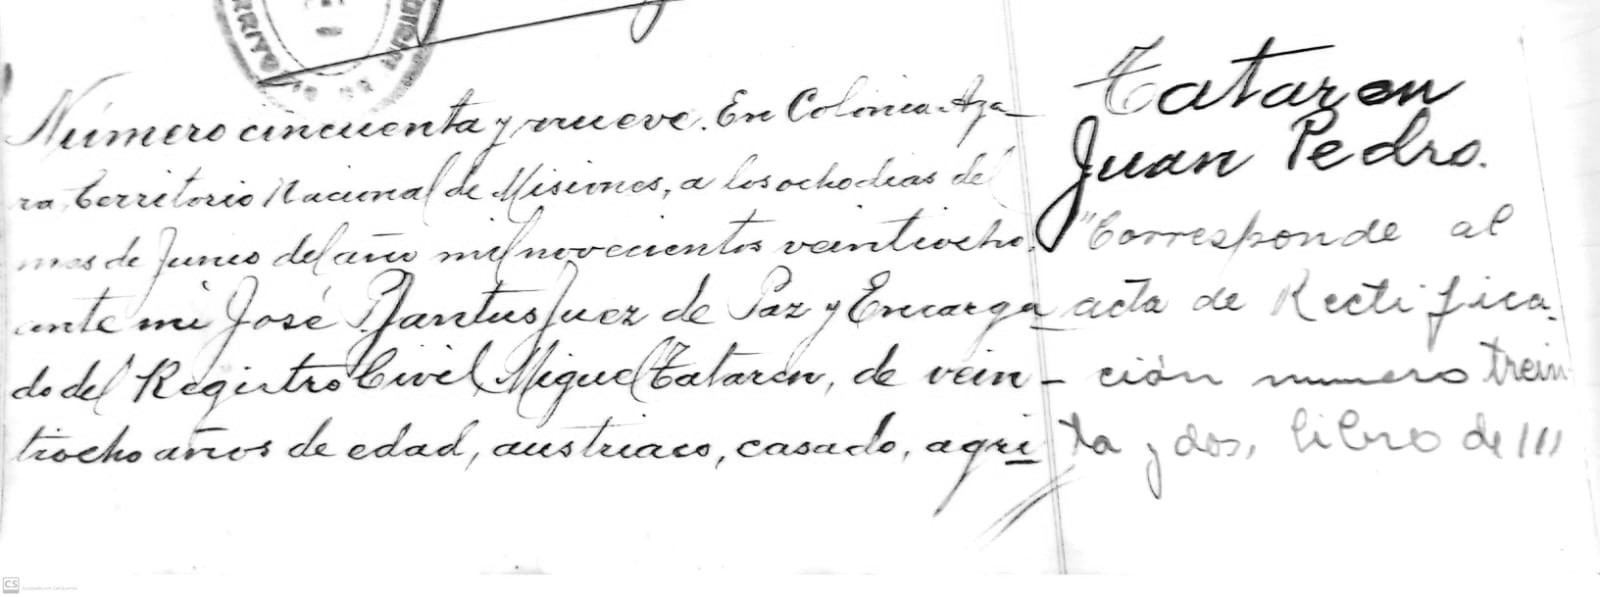 Número cincuenta y nueve. En Colonia Aza-
ra, Territorio Nacional de Misiones, a los ocho dias del
mes de Junio del año mil novecientos veintiocho,
ante mi José Juez de Paz y Encarga-
do del Registro Civil, Miguel Tataren, de vein-
tiocho años de edad, austriaco, casado, agri-
Tataren
Juan Pedro.
"Corresponde al
acta de Rectifica-
ción numero trein-
ta y dos, libro de
CS